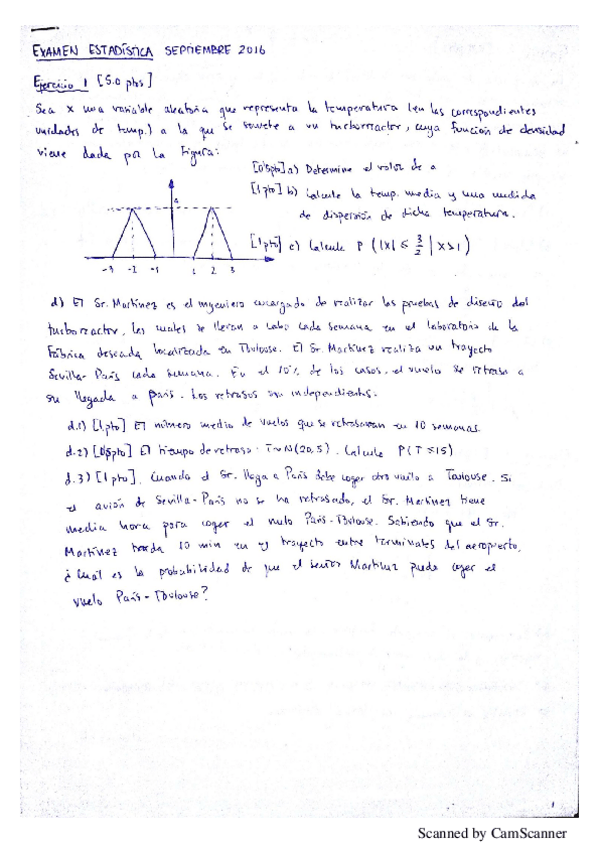 EXAMEN ESTADÍSTICA SEPTIEMBRE 2016
Ejercicio 1 [5.0 ptos]
Sea X una variable aleatoria que representa la temperatura (en las correspondientes
unidades de temp.) a la que se somete a un turborreactor, cuya función de densidad
viene dada por la Figura:
[0'5pto] a) Determine el valor de a
[1 pto] b) Calcule la temp. media y una medida
de dispersión de dicha temperatura.
[1 pto] c) Calcule P (|X| ≤ 3/2 | X>1)
a
-3 -2 -1 1 2 3
d) El Sr. Martínez es el ingeniero encargado de realizar las pruebas de diseño del
turborreactor, las cuales se llevan a cabo cada semana en el laboratorio de la
fábrica localizada en Toulouse. El Sr. Martínez realiza un trayecto
Sevilla-París cada semana. En el 10% de los casos, el vuelo se retrasa a
su llegada a París. Los retrasos son independientes.
d.1) [1 pto] El número medio de vuelos que se retrasaran en 10 semanas.
d.2) [0'5pto] El tiempo de retraso T~N(20,5). Calcule P(T≤15)
d.3) [1 pto]. Cuando el Sr. llega a París debe coger otro vuelo a Toulouse. Si
el avión de Sevilla-París no se ha retrasado, el Sr. Martínez tiene
media hora para coger el vuelo París-Toulouse. Sabiendo que el Sr.
Martínez tarda 10 min en trayecto entre terminales del aeropuerto,
¿Cuál es la probabilidad de que el señor Martínez pueda coger el
vuelo París-Toulouse?
Scanned by CamScanner